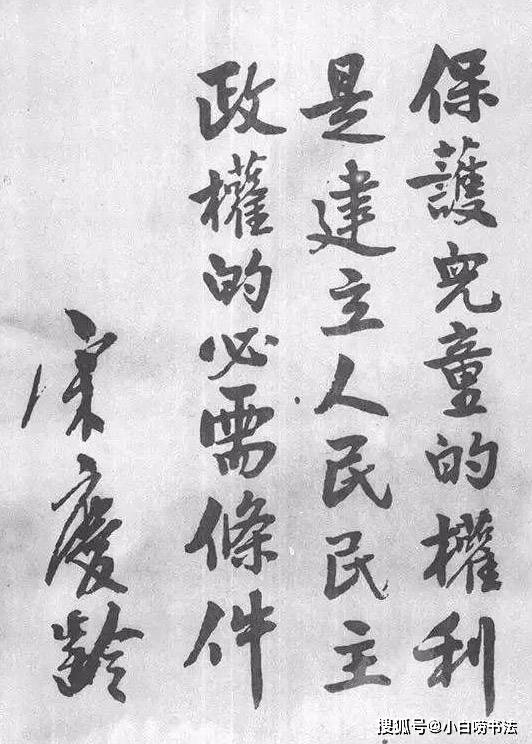 保護兒童的權利
是建立人民民主
政權的必需條件
宋慶齡
搜狐号@小白唠书法